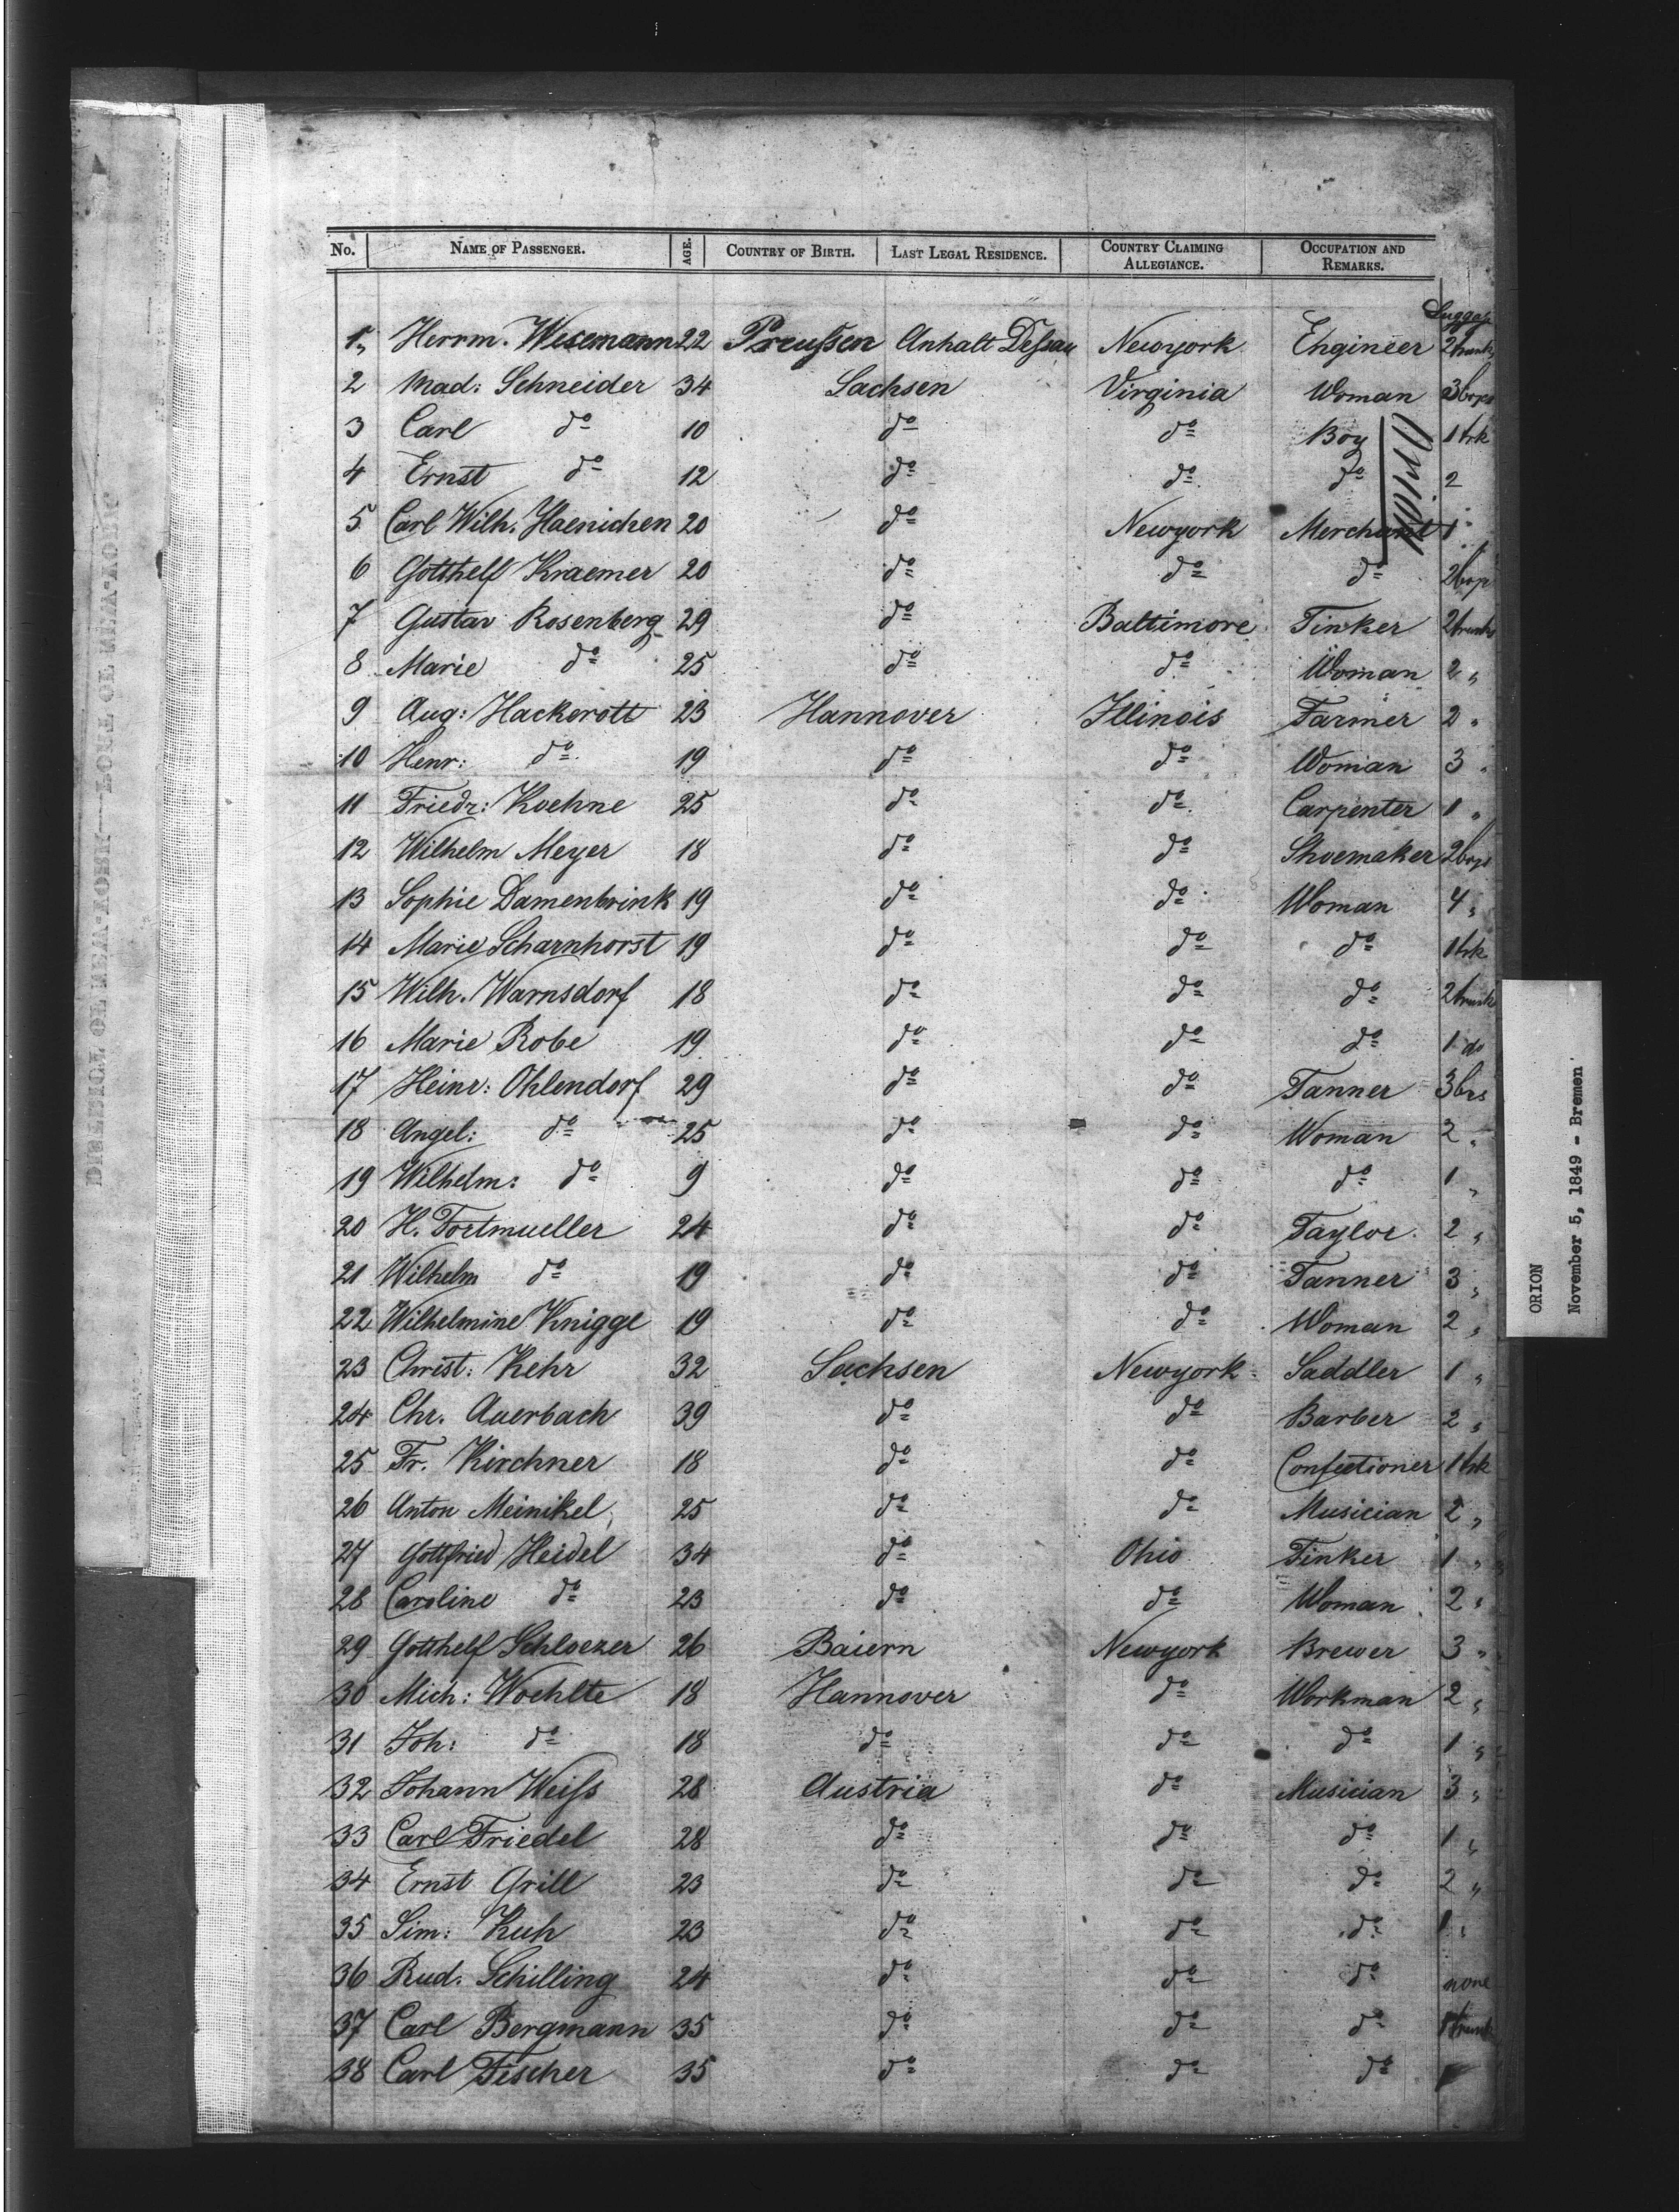 No. NAME OF PASSENGER. AGE. COUNTRY OF BIRTH. LAST LEGAL RESIDENCE. COUNTRY CLAIMING ALLEGIANCE. OCCUPATION AND REMARKS.
Luggage
1„ Herrm. Wesemann 22 Preußen Anhalt Deßau Newyork Engineer 2 trunks
2 Mad: Schneider 34 Sachsen Virginia Woman 3 boxes
3 Carl do 10 do do Boy 1 trk
4 Ernst do 12 do do do 2
5 Carl Wilh. Haenichen 20 do Newyork Merchant 1
6 Gotthelf Kraemer 20 do do do 2 box
7 Gustav Rosenberg 29 do Baltimore Tinker 2 trunks
8 Marie do 25 do do Woman 2 „
9 Aug: Hackerott 23 Hannover Illinois Farmer 2 „
10 Henr: do 19 do do Woman 3 „
11 Friedr: Koehne 25 do do Carpenter 1 „
12 Wilhelm Meyer 18 do do Shoemaker 2 boxs
13 Sophie Damenbrink 19 do do Woman 4 „
14 Marie Scharnhorst 19 do do do 1 trk
15 Wilh. Warnsdorf 18 do do do 2 trunk
16 Marie Robe 19 do do do 1 do
17 Heinr: Ohlendorf 29 do do Tanner 3 bxs
18 Angel: do 25 do do Woman 2 „
19 Wilhelm: do 9 do do do 1 „
20 H. Fortmueller 24 do do Taylor 2 „
21 Wilhelm do 19 do do Tanner 3 „
22 Wilhelmine Knigge 19 do do Woman 2 „
23 Christ: Kehr 32 Sachsen Newyork Saddler 1 „
24 Chr. Auerbach 39 do do Barber 2 „
25 Fr. Kirchner 18 do do Confectioner 1 trk
26 Anton Meinikel 25 do do Musician 2 „
27 Gottfried Heidel 34 do Ohio Tinker 1 „
28 Caroline do 23 do do Woman 2 „
29 Gotthelf Schloezer 26 Baiern Newyork Brewer 3 „
30 Mich: Woehlte 18 Hannover do Workman 2 „
31 Joh: do 18 do do do 1 „
32 Johann Weiß 28 Austria do Musician 3 „
33 Carl Friedel 28 do do do 1 „
34 Ernst Grill 23 do do do 2 „
35 Sim: Kuh 23 do do do 1 „
36 Rud. Schilling 24 do do do none
37 Carl Bergmann 35 do do do 1 trunk
38 Carl Fischer 35 do do do
ORION
November 5, 1849 - Bremen
DISTRICT OF NEW-YORK—PORT OF NEW-YORK